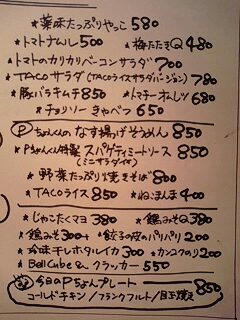 ★薬味たっぷりやっこ 580
★トマトナムル 500 ★梅たたきQ 480
★トマトのカリカリベーコンサラダ 700
★TACOサラダ(TACOライスサラダバージョン) 780
★豚バラキムチ 850 ★トマチーオムレツ 680
★チョリソーきゃべつ 650
Ⓟちょんくんの なす揚げそうめん 850
★Pちょんくん特製 スパゲティミートソース 850
(ミニサラダ付)
★野菜たっぷり焼きそば 800
★TACOライス 850 ★ねこまんま 400
★じゃこたくマヨ 380 ★鶏みそQ 380
★鶏みそ 300 ★餃子の皮のパリパリ 200
★珍味干しホタルイカ 300 ★カンコクのり 200
★BellCube & クラッカー 550
今日のPちょんプレート 850
コールドチキン/フランクフルト/目玉焼き